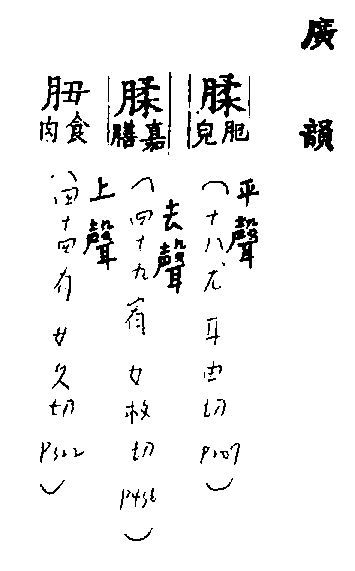 廣韻
腬 肥皃
平聲
(十八尤 耳由切 P207)
腬 嘉膳
去聲
(四十九宥 女救切 P436)
䏔 食肉
上聲
(四十四有 女久切 P322)